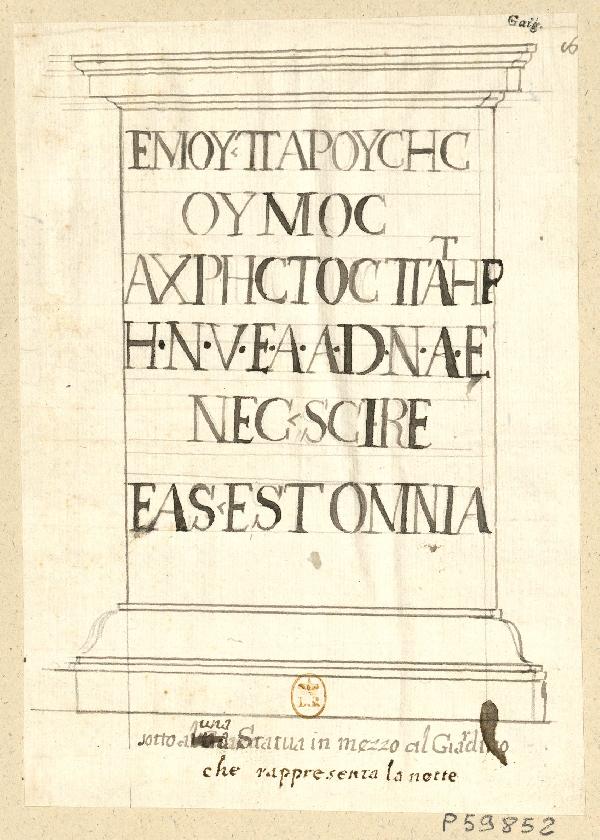 Gaig.
ΕΜΟΥ·ΠΑΡΟΥCΗC
ΟΥΜΟC
ΑΧΡΗCΤΟC ΠΑΤΗΡ
H·N·V·F·A·A·D·N·A·E
NEC·SCIRE
EAS·EST OMNIA
sotto una Statua in mezzo al Giardino
che rappresenta la notte
P59852